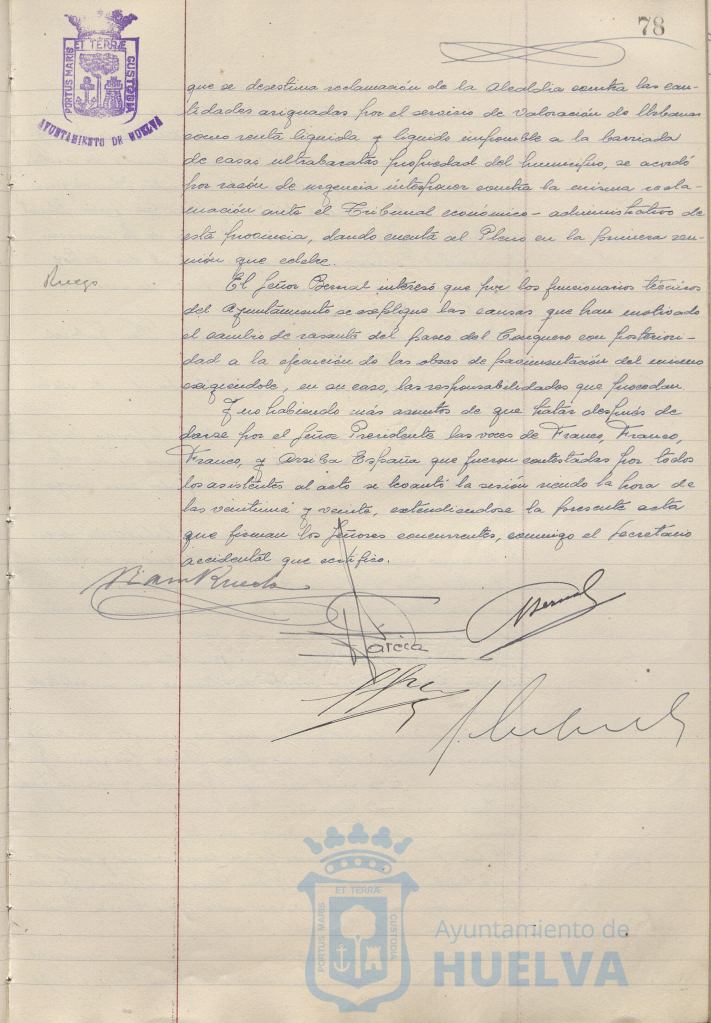 78
PORTUS MARIS ET TERRÆ CUSTODIA
AYUNTAMIENTO DE HUELVA
que se desestima reclamación de la Alcaldia contra las can-
tidades asignadas por el servicio de Valoración de Urbanas
como renta liquida y liquido imponible a la barriada
de casas ultrabaratas propiedad del Municipio, se acordó
por razón de urgencia interponer contra la misma recla-
mación ante el Tribunal económico-administrativo de
esta provincia, dando cuenta al Pleno en la primera reu-
nión que celebre.
Ruego
El Señor Bernal interesó que por los funcionarios técnicos
del Ayuntamiento se explique las causas que han motivado
el cambio de rasante del paseo del Conquero con posteriori-
dad a la ejecución de las obras de pavimentación del mismo
exigiendole, en su caso, las responsabilidades que procedan.
Y no habiendo más asuntos de que tratar después de
darse por el Señor Presidente las voces de Franco, Franco,
Franco, y Arriba España que fueron contestadas por todos
los asistentes al acto se levantó la sesión siendo la hora de
las veintiuna y veinte, extendiendose la presente acta
que firman los Señores concurrentes, conmigo el Secretario
accidental que certifico.
García
Bernal
PORTUS MARIS ET TERRÆ CUSTODIA
Ayuntamiento de
HUELVA